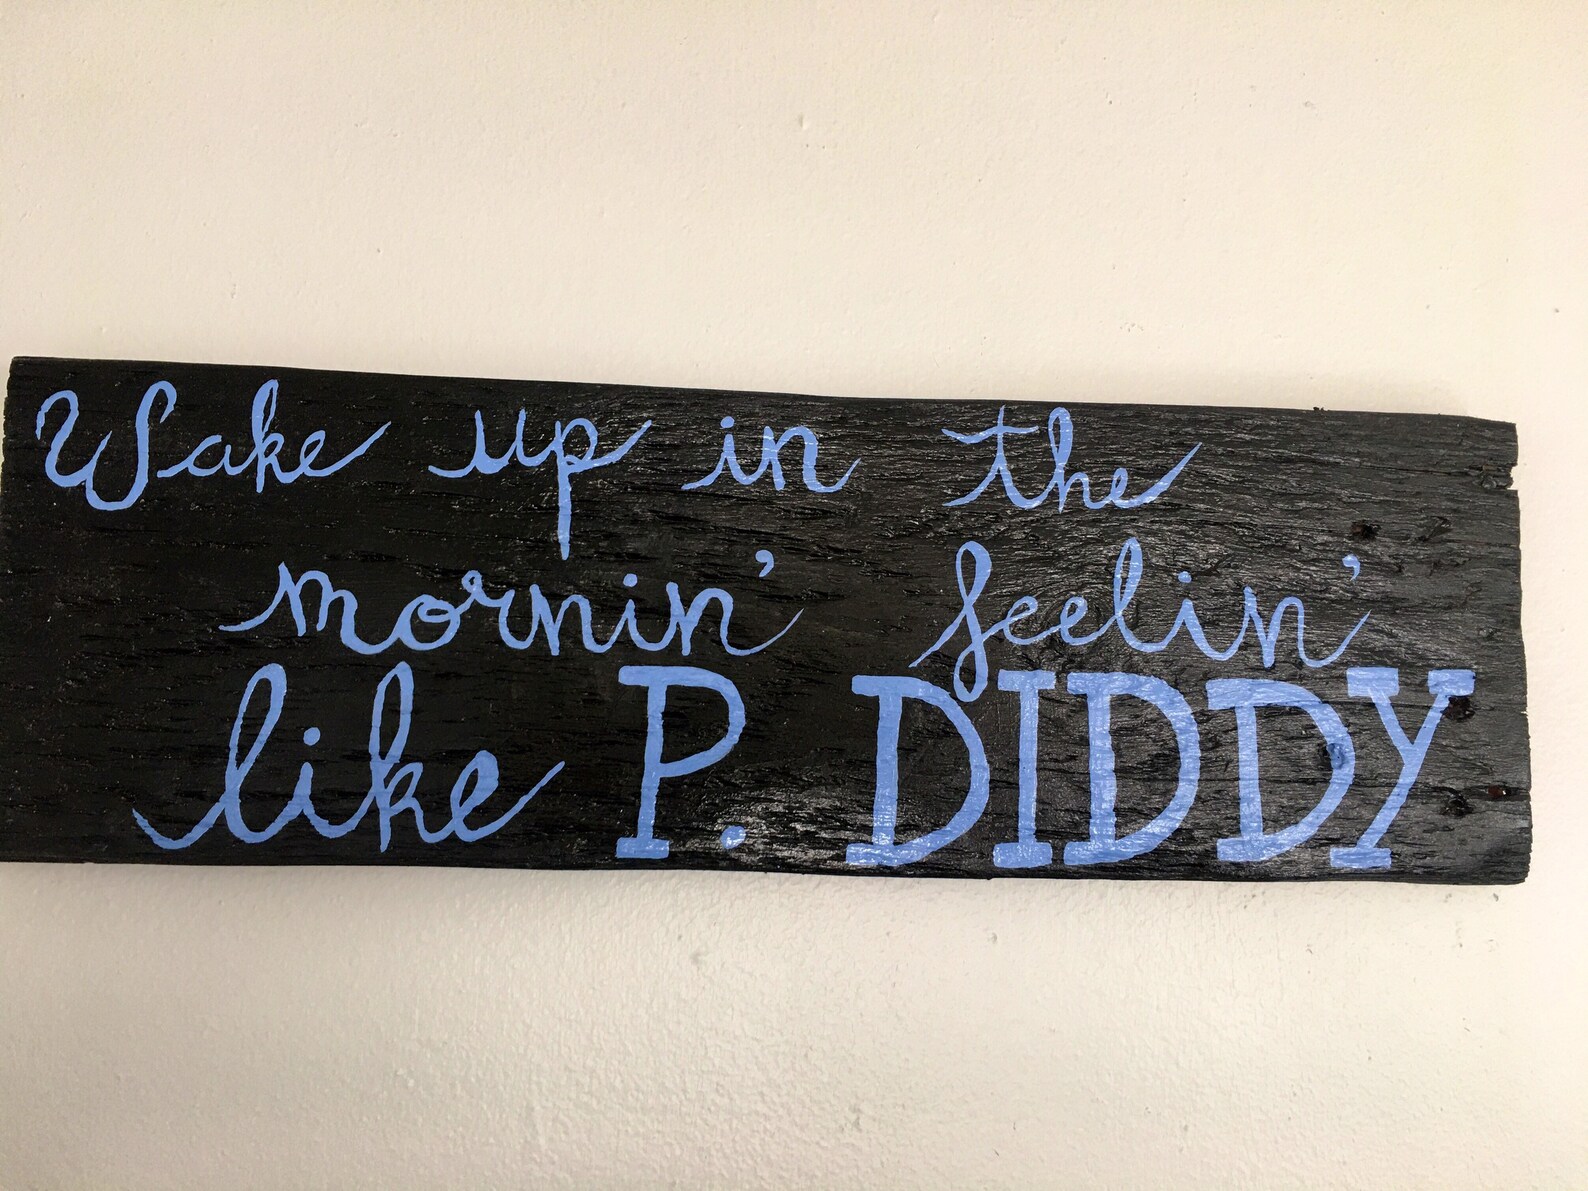 Wake up in the
mornin' feelin'
like P. DIDDY